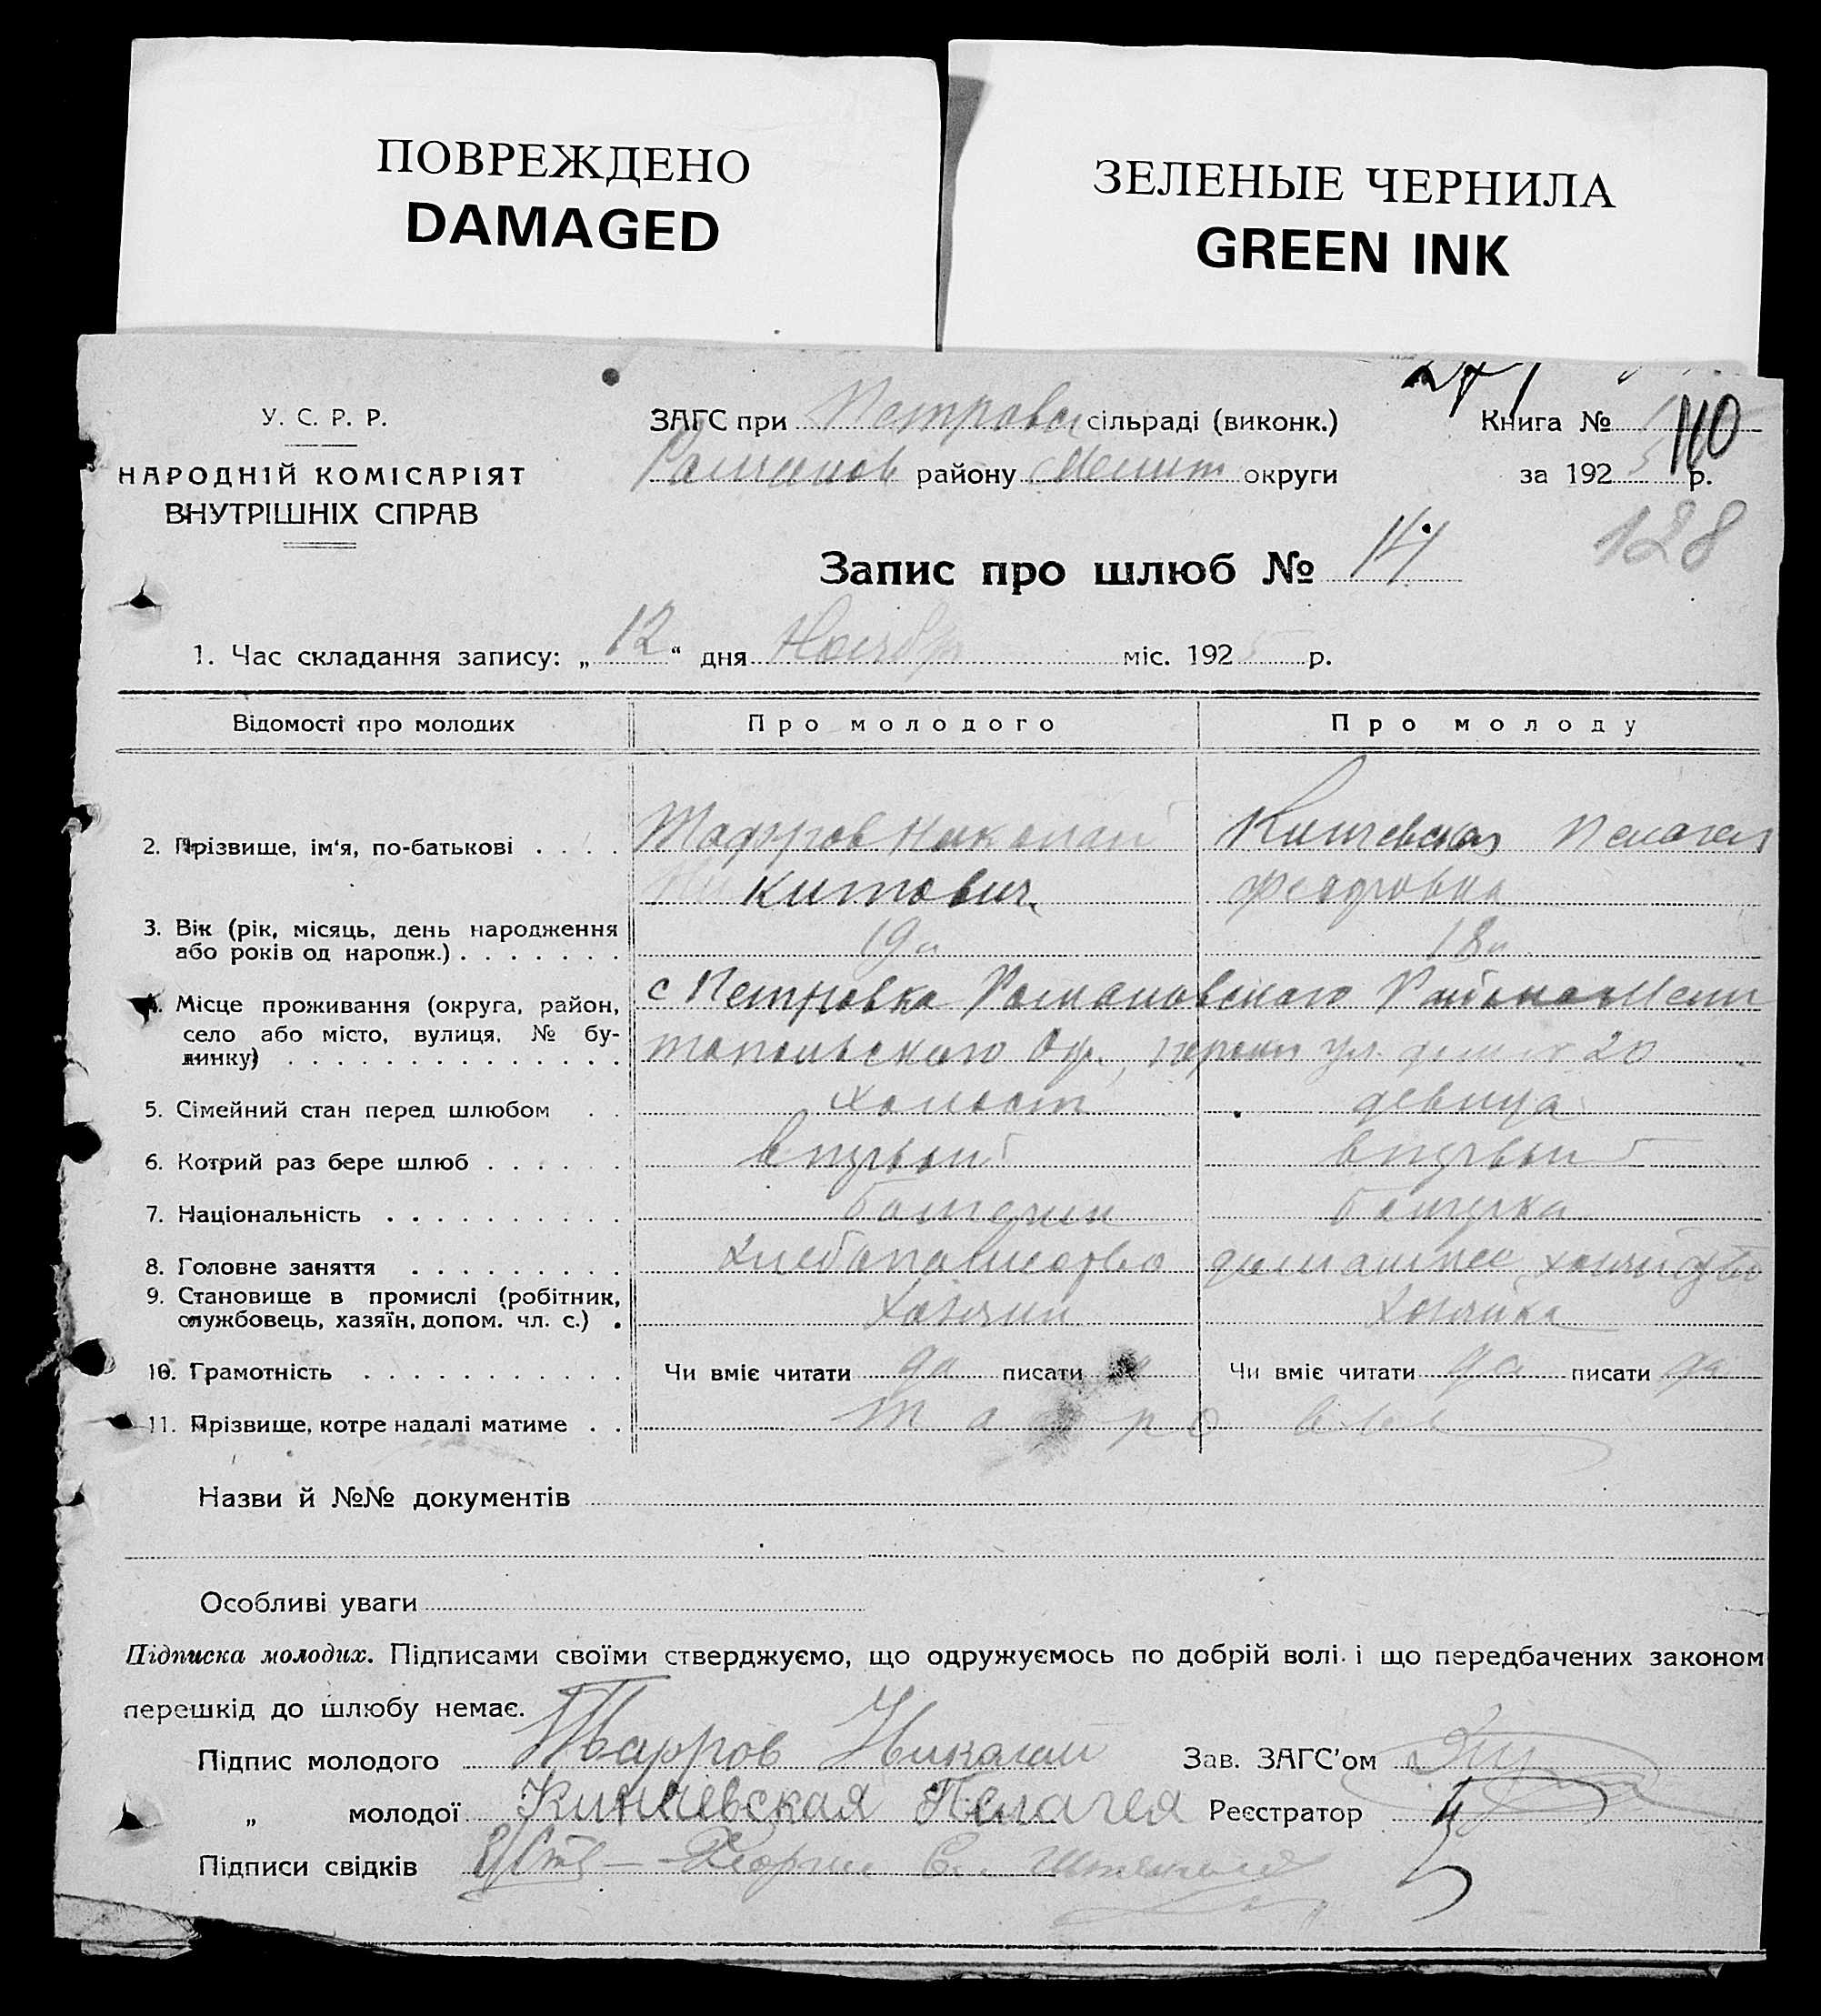 ПОВРЕЖДЕНО
DAMAGED
ЗЕЛЕНЫЕ ЧЕРНИЛА
GREEN INK
У. С. Р. Р.
НАРОДНІЙ КОМІСАРІЯТ
ВНУТРІШНІХ СПРАВ
ЗАГС при Петровск сільраді (виконк.)
Романов району Мелит округи
Книга №
110
за 192 5 р.
128
Запис про шлюб № 14
1. Час складання запису: „ 12 “ дня Ноябр міс. 192 5 р.
Відомості про молодих Про молодого Про молоду
2. Прізвище, ім'я, по-батькові . . . . Николай Пелагея
Никитович Феодровна
3. Вік (рік, місяць, день народження
або років од народж.) . . . . . . . 19 л 18 л
4. Місце проживання (округа, район, с Петровка Романовского Района Мели
село або місто, вулиця, № бу-
динку) . . . . . . . . . . . . . топольского Окр, ул. 20
5. Сімейний стан перед шлюбом . . холост девица
6. Котрий раз бере шлюб . . . . . . впервый впервый
7. Національність . . . . . . . . . . болгарин болгарка
8. Головне заняття . . . . . . . . . хлебопашество домашнее хозяйство
9. Становище в промислі (робітник,
службовець, хазяїн, допом. чл. с.) . Хозяин Хозяйка
10. Грамотність . . . . . . . . . . . Чи вміє читати да писати Чи вміє читати да писати да
11. Прізвище, котре надалі матиме . .
Назви й №№ документів
Особливі уваги
Підписка молодих. Підписами своїми стверджуємо, що одружуємось по добрій волі і що передбачених законом
перешкід до шлюбу немає.
Підпис молодого Николай Зав. ЗАГС'ом
„ молодої Кишлевская Пелагея Реєстратор
Підписи свідків